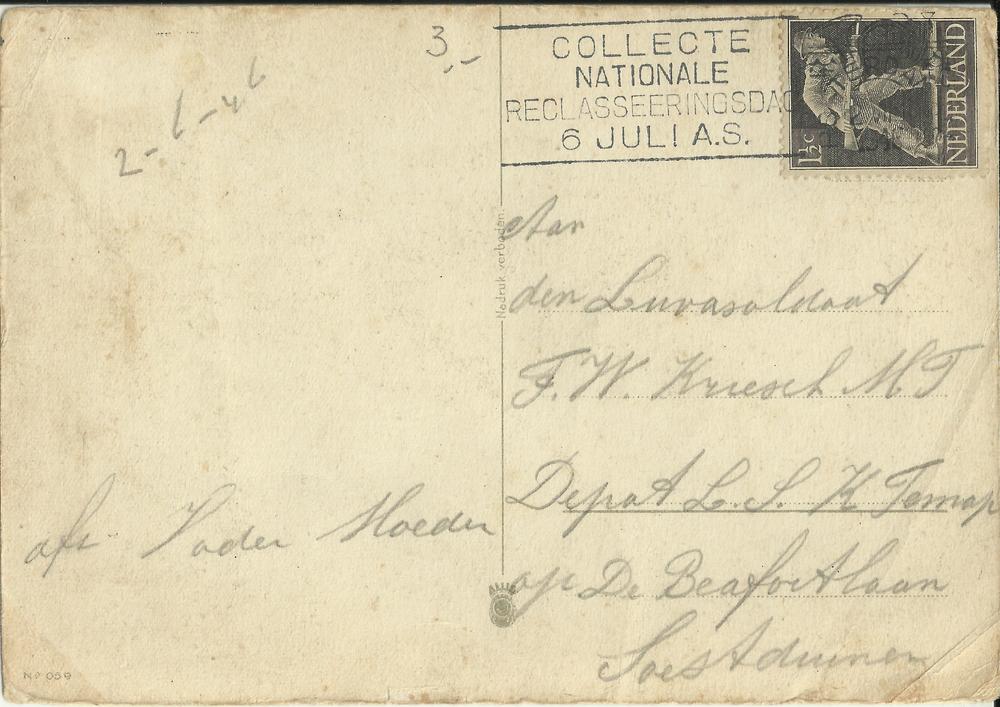 3,-
2- 1-46
COLLECTE
NATIONALE
RECLASSEERINGSDAG
6 JULI A.S.
NEDERLAND
1½ c
Aan
den Luvasoldaat
F. W. Kriesch MT
Depot L. S. K Temap
op De Beafortlaan
Soestduinen
afz Vader Moeder
Nadruk verboden.
No 059